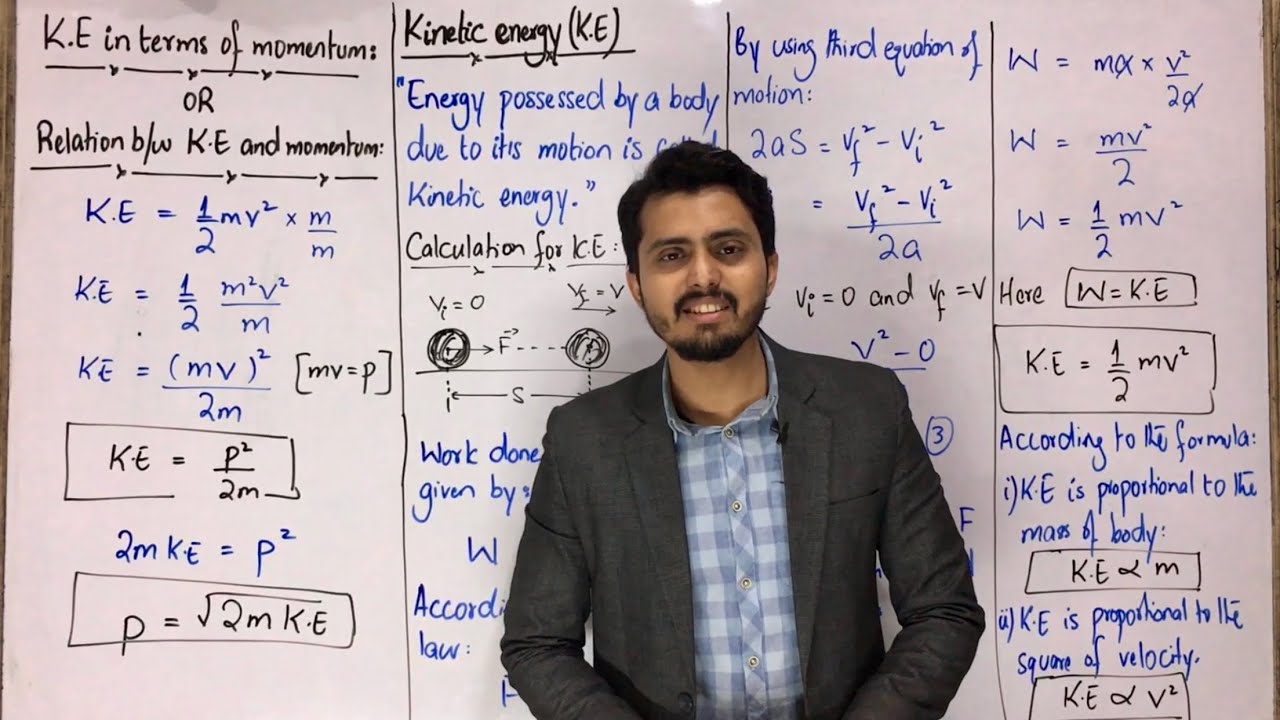 K.E in terms of momentum:
OR
Relation b/w K.E and momentum:
K.E = 1/2 mv² × m/m
K.E = 1/2 m²v²/m
K.E = (mv)²/2m [mv=p]
K.E = P²/2m
2m K.E = p²
p = √2m K.E
Kinetic energy (K.E)
"Energy possessed by a body
due to it's motion is
Kinetic energy."
Calculation for K.E:
Vi = 0
Vf = V
F
S
Work done
given by:
W
law:
By using third equation of
motion:
2aS = Vf² - Vi²
= Vf² - Vi²/2a
Vi = 0 and Vf = V
V² - 0
3
F
W = ma × v²/2a
W = mv²/2
W = 1/2 mv²
Here W = K.E
K.E = 1/2 mv²
According to the formula:
i) K.E is proportional to the
mass of body:
K.E ∝ m
ii) K.E is proportional to the
square of velocity.
K.E ∝ V²